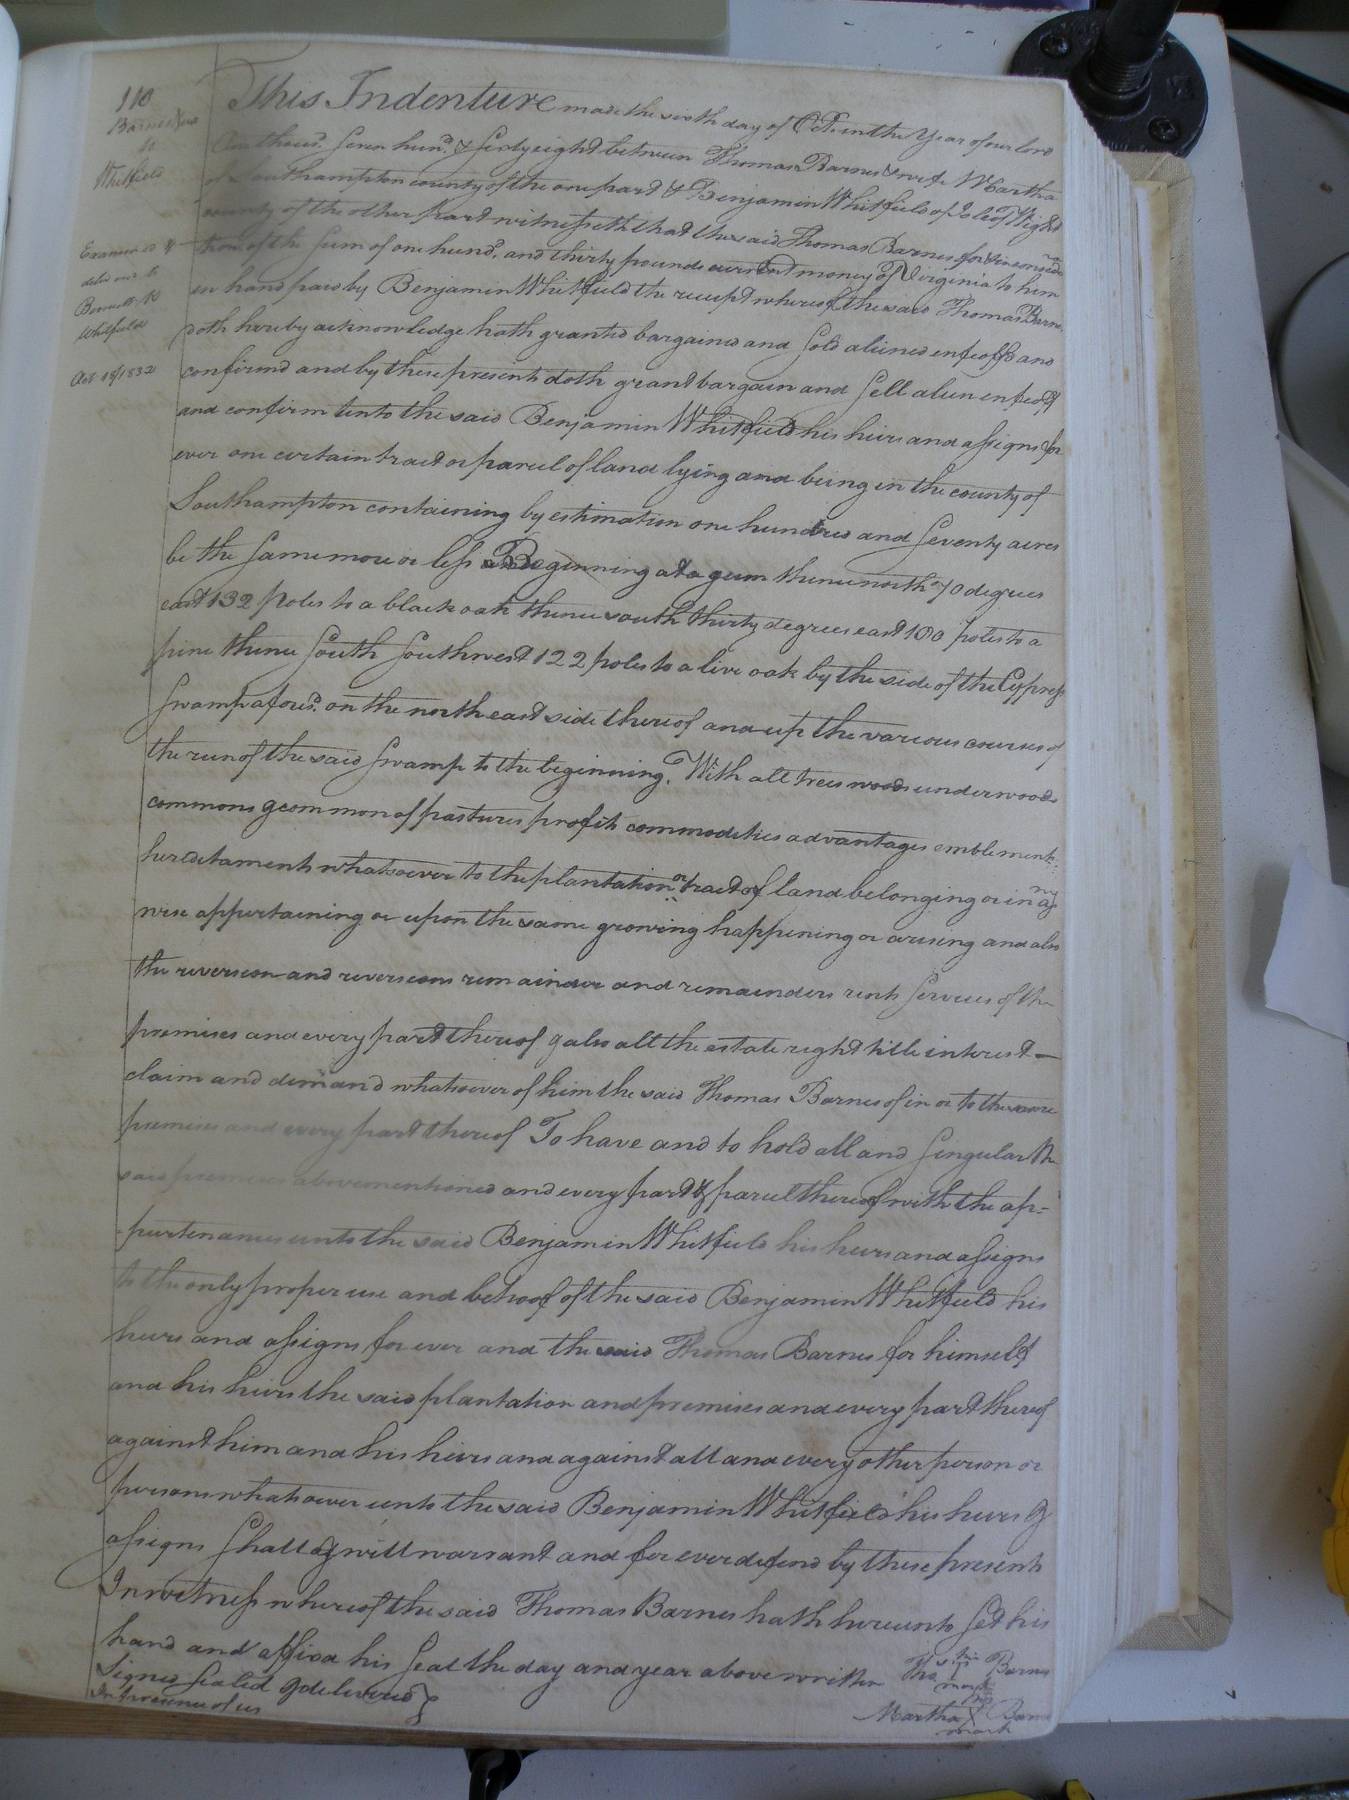 110
Barnes & ux
to
Whitfield
Examined &
delivered to
Bennett W
Whitfield
Oct 18 1832
This Indenture made the sixth day of Oct. in the Year of our lord
One thous.d Seven hund.d & Sixty eight between Thomas Barnes & wife Martha
of Southampton county of the one part & Benjamin Whitfield of Isle of Wight
county of the other part witnesseth that the said Thomas Barnes for & in considera
tion of the Sum of one hund.d and thirty pounds current money of Virginia to him
in hand paid by Benjamin Whitfield the receipt whereof the said Thomas Barnes
doth hereby acknowledge hath granted bargained and Sold aliened enfeoffd and
confirmd and by these presents doth grant bargain and Sell alien enfeoff
and confirm unto the said Benjamin Whitfield his heirs and assigns for
ever one certain tract or parcel of land lying and being in the county of
Southampton containing by estimation one hundred and Seventy acres
be the Same more or less Beginning at a gum thence north 70 degrees
east 132 poles to a black oak thence south thirty degrees east 100 poles to a
pine thence South Southwest 122 poles to a live oak by the side of the Cypress
Swamp afores.d on the north east side thereof and up the various courses of
the run of the said Swamp to the beginning. With all trees woods underwoods
commons & common of pastures profits commodities advantages emblements
hereditaments whatsoever to the plantation or tract of land belonging or in any
wise appertaining or upon the same growing happening or arising and also
the reversion and reversions remainder and remainders rents Services of the
premises and every part thereof & also all the estate right title interest —
claim and demand whatsoever of him the said Thomas Barnes of in or to the same
premises and every part thereof To have and to hold all and Singular the
said premises abovementioned and every part & parcel thereof with the ap=
-purtenances unto the said Benjamin Whitfield his heirs and assigns
to the only proper use and behoof of the said Benjamin Whitfield his
heirs and assigns for ever and the said Thomas Barnes for himself
and his heirs the said plantation and premises and every part thereof
against him and his heirs and against all and every other person or
persons whatsoever unto the said Benjamin Whitfield his heirs &
assigns Shall & will warrant and for ever defend by these presents
In witness whereof the said Thomas Barnes hath hereunto Set his
hand and affixd his Seal the day and year above written
Signed Sealed & delivered
In presence of us
his
Tho Barnes
mark
Martha X Barnes
mark